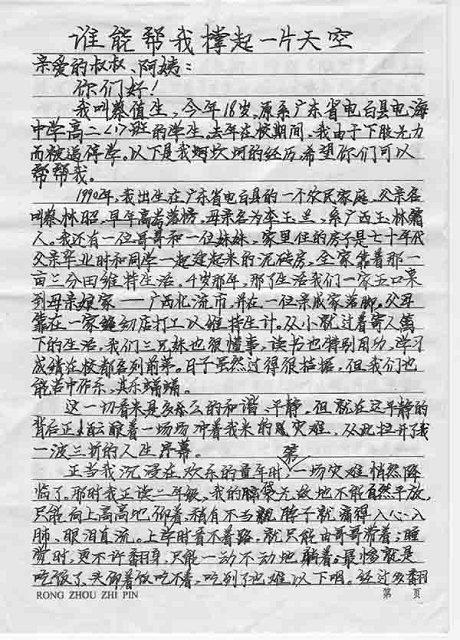 谁能帮我撑起一片天空
亲爱的叔叔、阿姨：
你们好！
我叫蔡值生，今年18岁，原系广东省电白县电海
中学高二<1>班的学生。去年在校期间，我由于下肢无力
而被迫停学。以下是我坎坷的经历希望你们可以
帮帮我。
1990年，我出生在广东省电白县的一个农民家庭，父亲名
叫蔡林昭，早年高考落榜，母亲名为李玉兰，系广西玉林籍
人。我还有一位哥哥和一位妹妹，家里住的房子是七十年代
父亲毕业时和同学一起建起来的泥砖房，全家靠着那一
亩三分田维持生活。4岁那年，那了生活我们一家五口来
到母亲娘家——广西北流市，并在一位亲戚家落脚，父母
靠在一家缝纫店打工以维持生计。从小就过着寄人篱
下的生活，我们三兄妹也很懂事，读书也特别用功，学习
成绩在校都名列前茅。日子虽然过得很拮据，但我们也
能苦中作乐，其乐融融。
这一切看来是多么的和谐、平静，但就在这平静的
背后正酝酿着一场场冲着我来的灾难，从此拉开了我
一波三折的人生序幕。
正当我沉浸在欢乐的童年时，一场灾难悄然降
临了。那时我正读三年级，我的脑袋无故地不能自然平放，
只能向上高高地仰着，稍有不当，脖子就痛得入心、入
肺，眼泪直流。上学时看不着路，就只能由哥哥带着；睡
觉时，更不许翻身，只能一动不动地躺着；最惨就是
吃饭了，头仰着饭吃不着，吃到了也难以下咽。经过多翻
RONG ZHOU ZHI PIN
第 页